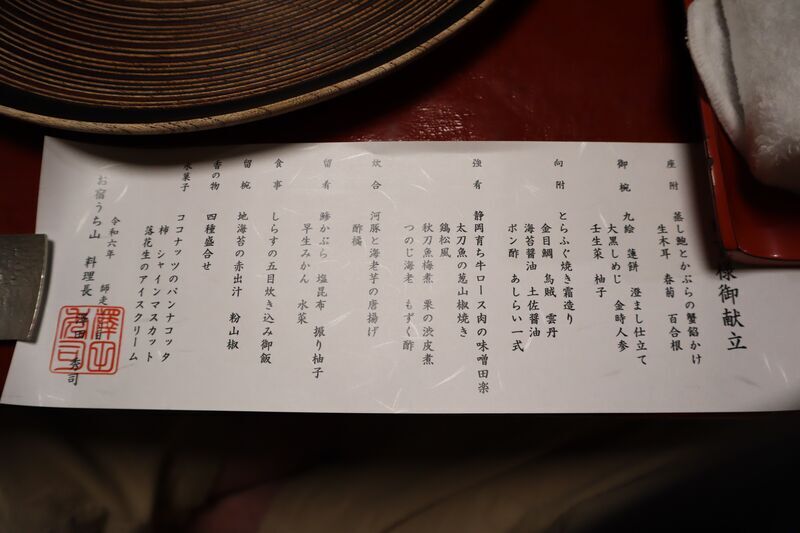 様御献立
座附
蒸し鮑とかぶらの蟹餡かけ
生木耳 春菊 百合根
御椀
九絵 蓮餅 澄まし仕立て
大黒しめじ 金時人参
壬生菜 柚子
向附
とらふぐ焼き霜造り
金目鯛 烏賊 雲丹
海苔醤油 土佐醤油
ポン酢 あしらい一式
強肴
静岡育ち牛ロース肉の味噌田楽
太刀魚の葱山椒焼き
鶏松風
秋刀魚梅煮 栗の渋皮煮
つのじ海老 もずく酢
炊合
河豚と海老芋の唐揚げ
酢橘
留肴
鯵かぶら 塩昆布 振り柚子
早生みかん 水菜
食事
しらすの五目炊き込み御飯
留椀
地海苔の赤出汁 粉山椒
香の物
四種盛合せ
水菓子
ココナッツのパンナコッタ
柿 シャインマスカット
落花生のアイスクリーム
令和六年 師走
お宿うち山 料理長 澤田 秀司